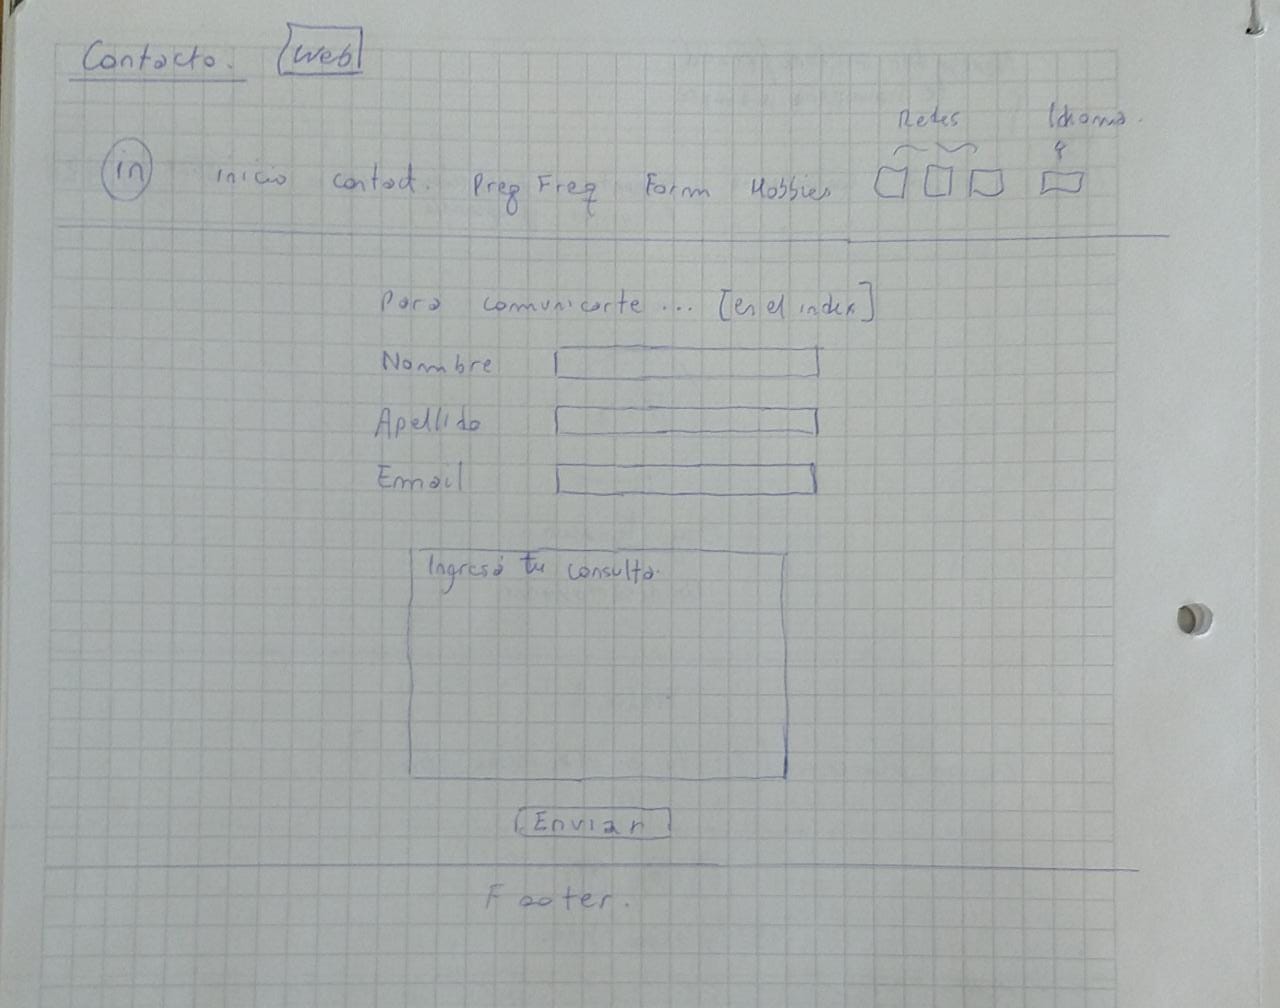 Contacto. Web
Redes Idioma.
in inicio contact. Preg Freq Form Hobbies
Para comunicarte ... [en el index]
Nombre
Apellido
Email
Ingresá tu consulta.
Enviar
Footer.